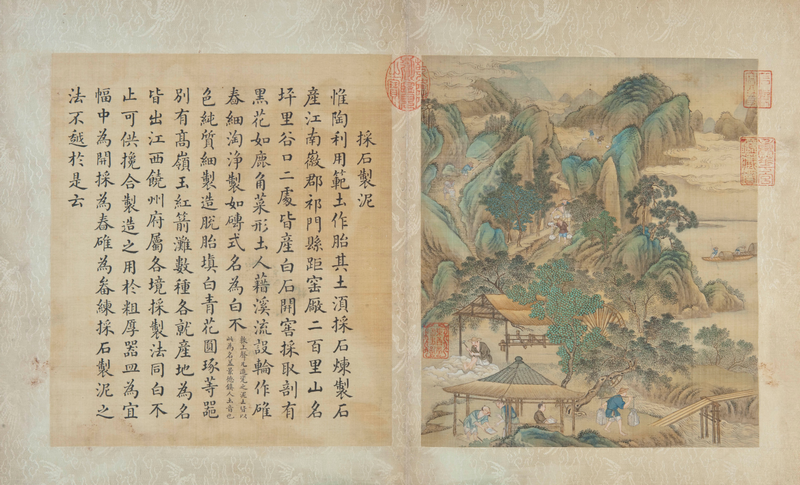 採石製泥
惟陶利用範土作胎其土湏採石煉製石
産江南徽郡祁門縣距窑厰二百里山名
坪里谷口二處皆産白石開窖採取剖有
黑花如鹿角菜形土人藉溪流設輪作碓
舂細淘淨製如磚式名為白不
敦上聲凡造瓷之泥土皆以
此為名蓋景德鎮人土音也
色純質細製造脱胎填白青花圓琢等噐
别有高嶺玉紅箭灘數種各就産地為名
皆出江西饒州府屬各境採製法同白不
止可供攙合製造之用於粗厚噐皿為宜
幅中為開採為舂碓為畚練採石製泥之
法不越於是云